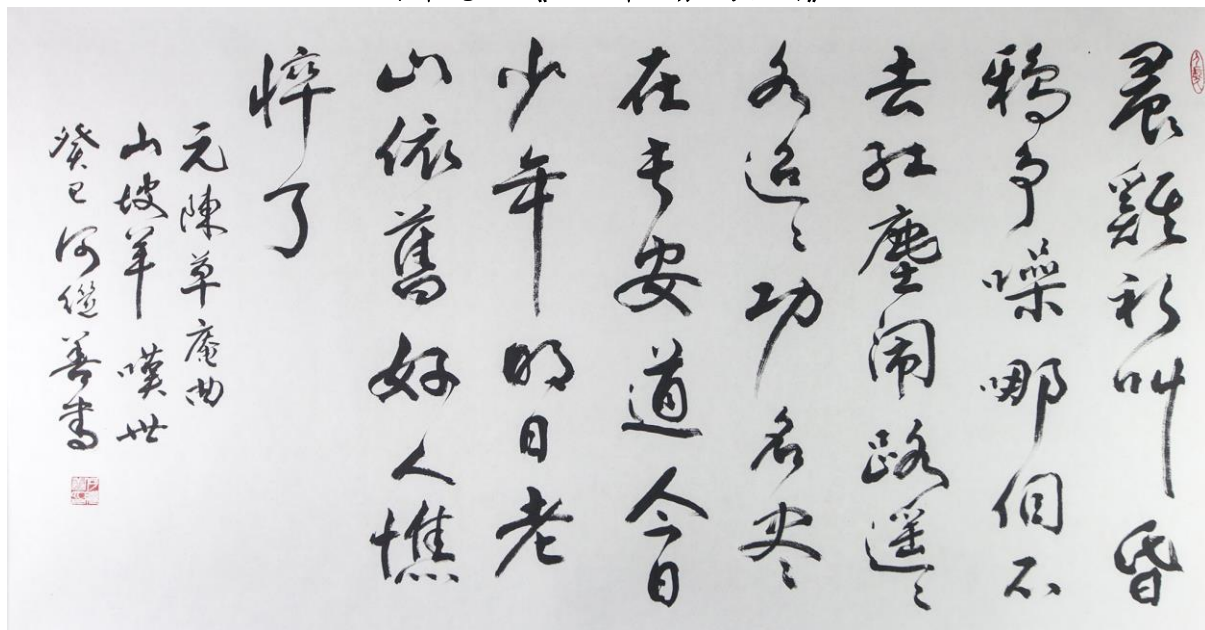 晨雞初叫昏
鴉争噪哪個不
去红塵闹路遥〻
水迢〻功名尽〻
在长安道今日
少年明日老
山依舊好人憔
悴了
元陳草庵曲
山坡羊 嘆世
癸巳何继善書